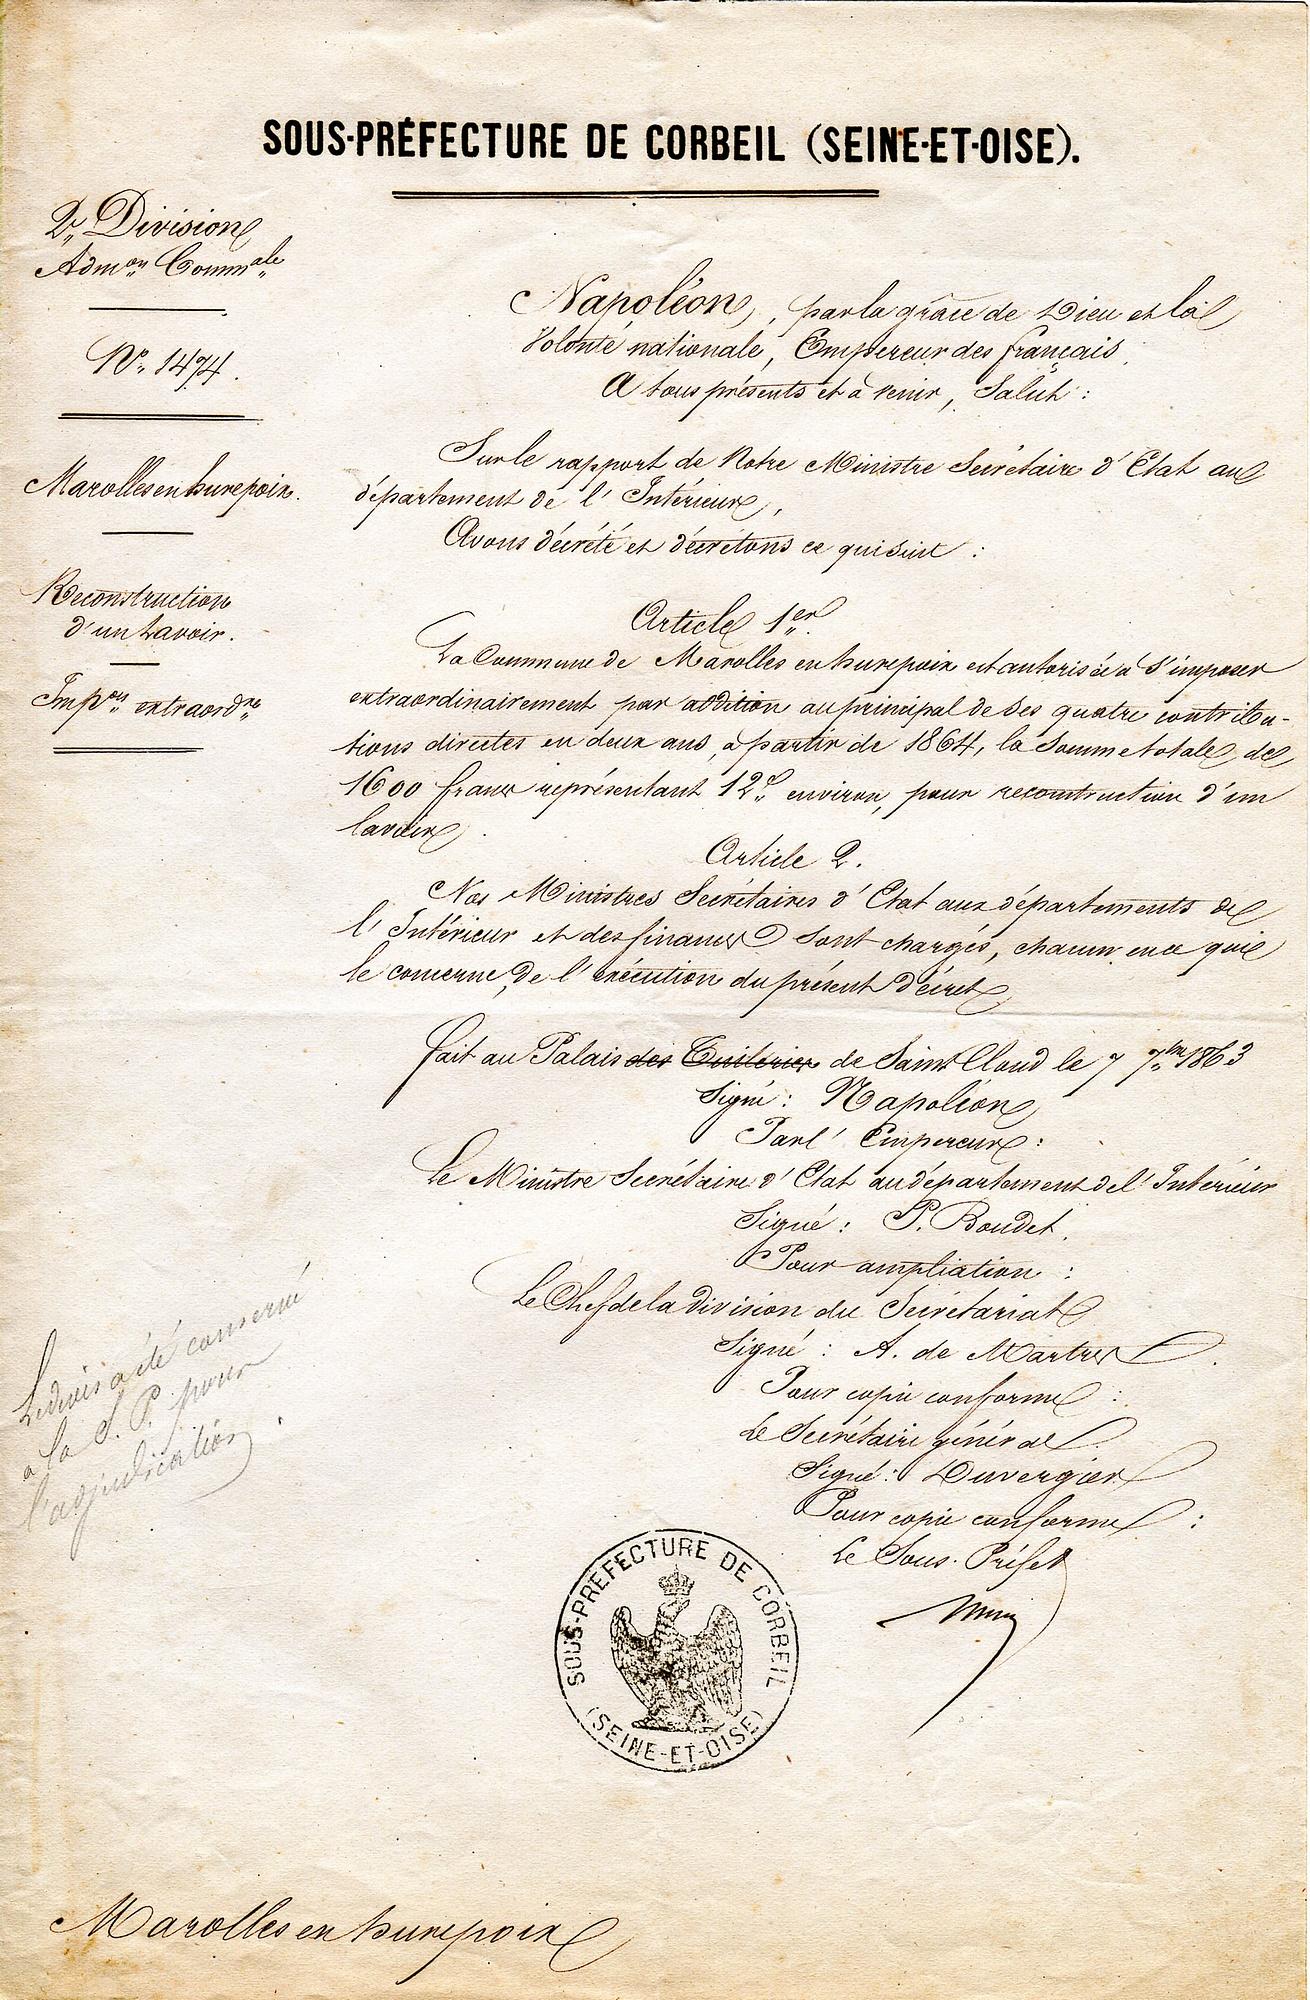 SOUS-PRÉFECTURE DE CORBEIL (SEINE-ET-OISE).
2e Division
Admon Commale
No 1474.
Marolles en hurepoix.
Reconstruction
d'un Lavoir.
Impon extraordre
Napoléon, par la grâce de Dieu et la
Volonté nationale, Empereur des français,
A tous présents et à venir, Salut :
Sur le rapport de Notre Ministre Secrétaire d'Etat au
département de l'Intérieur,
Avons décrété et décrétons ce qui suit :
Article 1er.
La Commune de Marolles en hurepoix est autorisée à s'imposer
extraordinairement par addition au principal de ses quatre contribu-
tions directes en deux ans, à partir de 1864, la Somme totale de
1600 francs représentant 12c environ, pour reconstruction d'un
lavoir.
Article 2.
Nos Ministres Secrétaires d'Etat aux départements de
l'Intérieur et des finances sont chargés, chacun en ce qui
le concerne, de l'exécution du présent décret
fait au Palais des Tuileries de Saint Cloud le 7 7bre 1863
Signé : Napoléon
Par l'Empereur :
Le Ministre Secrétaire d'Etat au département de l'Intérieur
Signé : P. Boudet.
Pour ampliation :
Le Chef de la division du Secrétariat
Signé : A. de Martres.
Pour copie conforme :
Le Secrétaire général
Signé : Duvergier
Pour copie conforme :
Le Sous-Préfet
Le devis a été conservé
à la S. P. pour
l'adjudication.
SOUS-PREFECTURE DE CORBEIL
(SEINE-ET-OISE)
Marolles en hurepoix